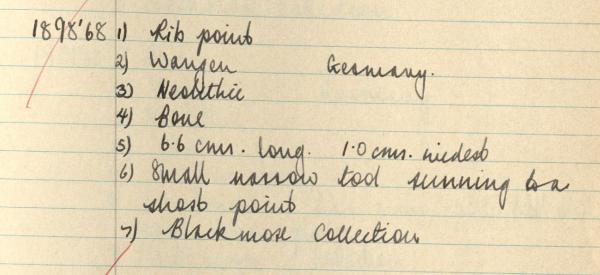 1898'68 1) Rib point
2) Wangen Germany.
3) Neolithic
4) Bone
5) 6.6 cms. long. 1.0 cms. widest
6) Small narrow tool running to a
short point
7) Blackmore Collection